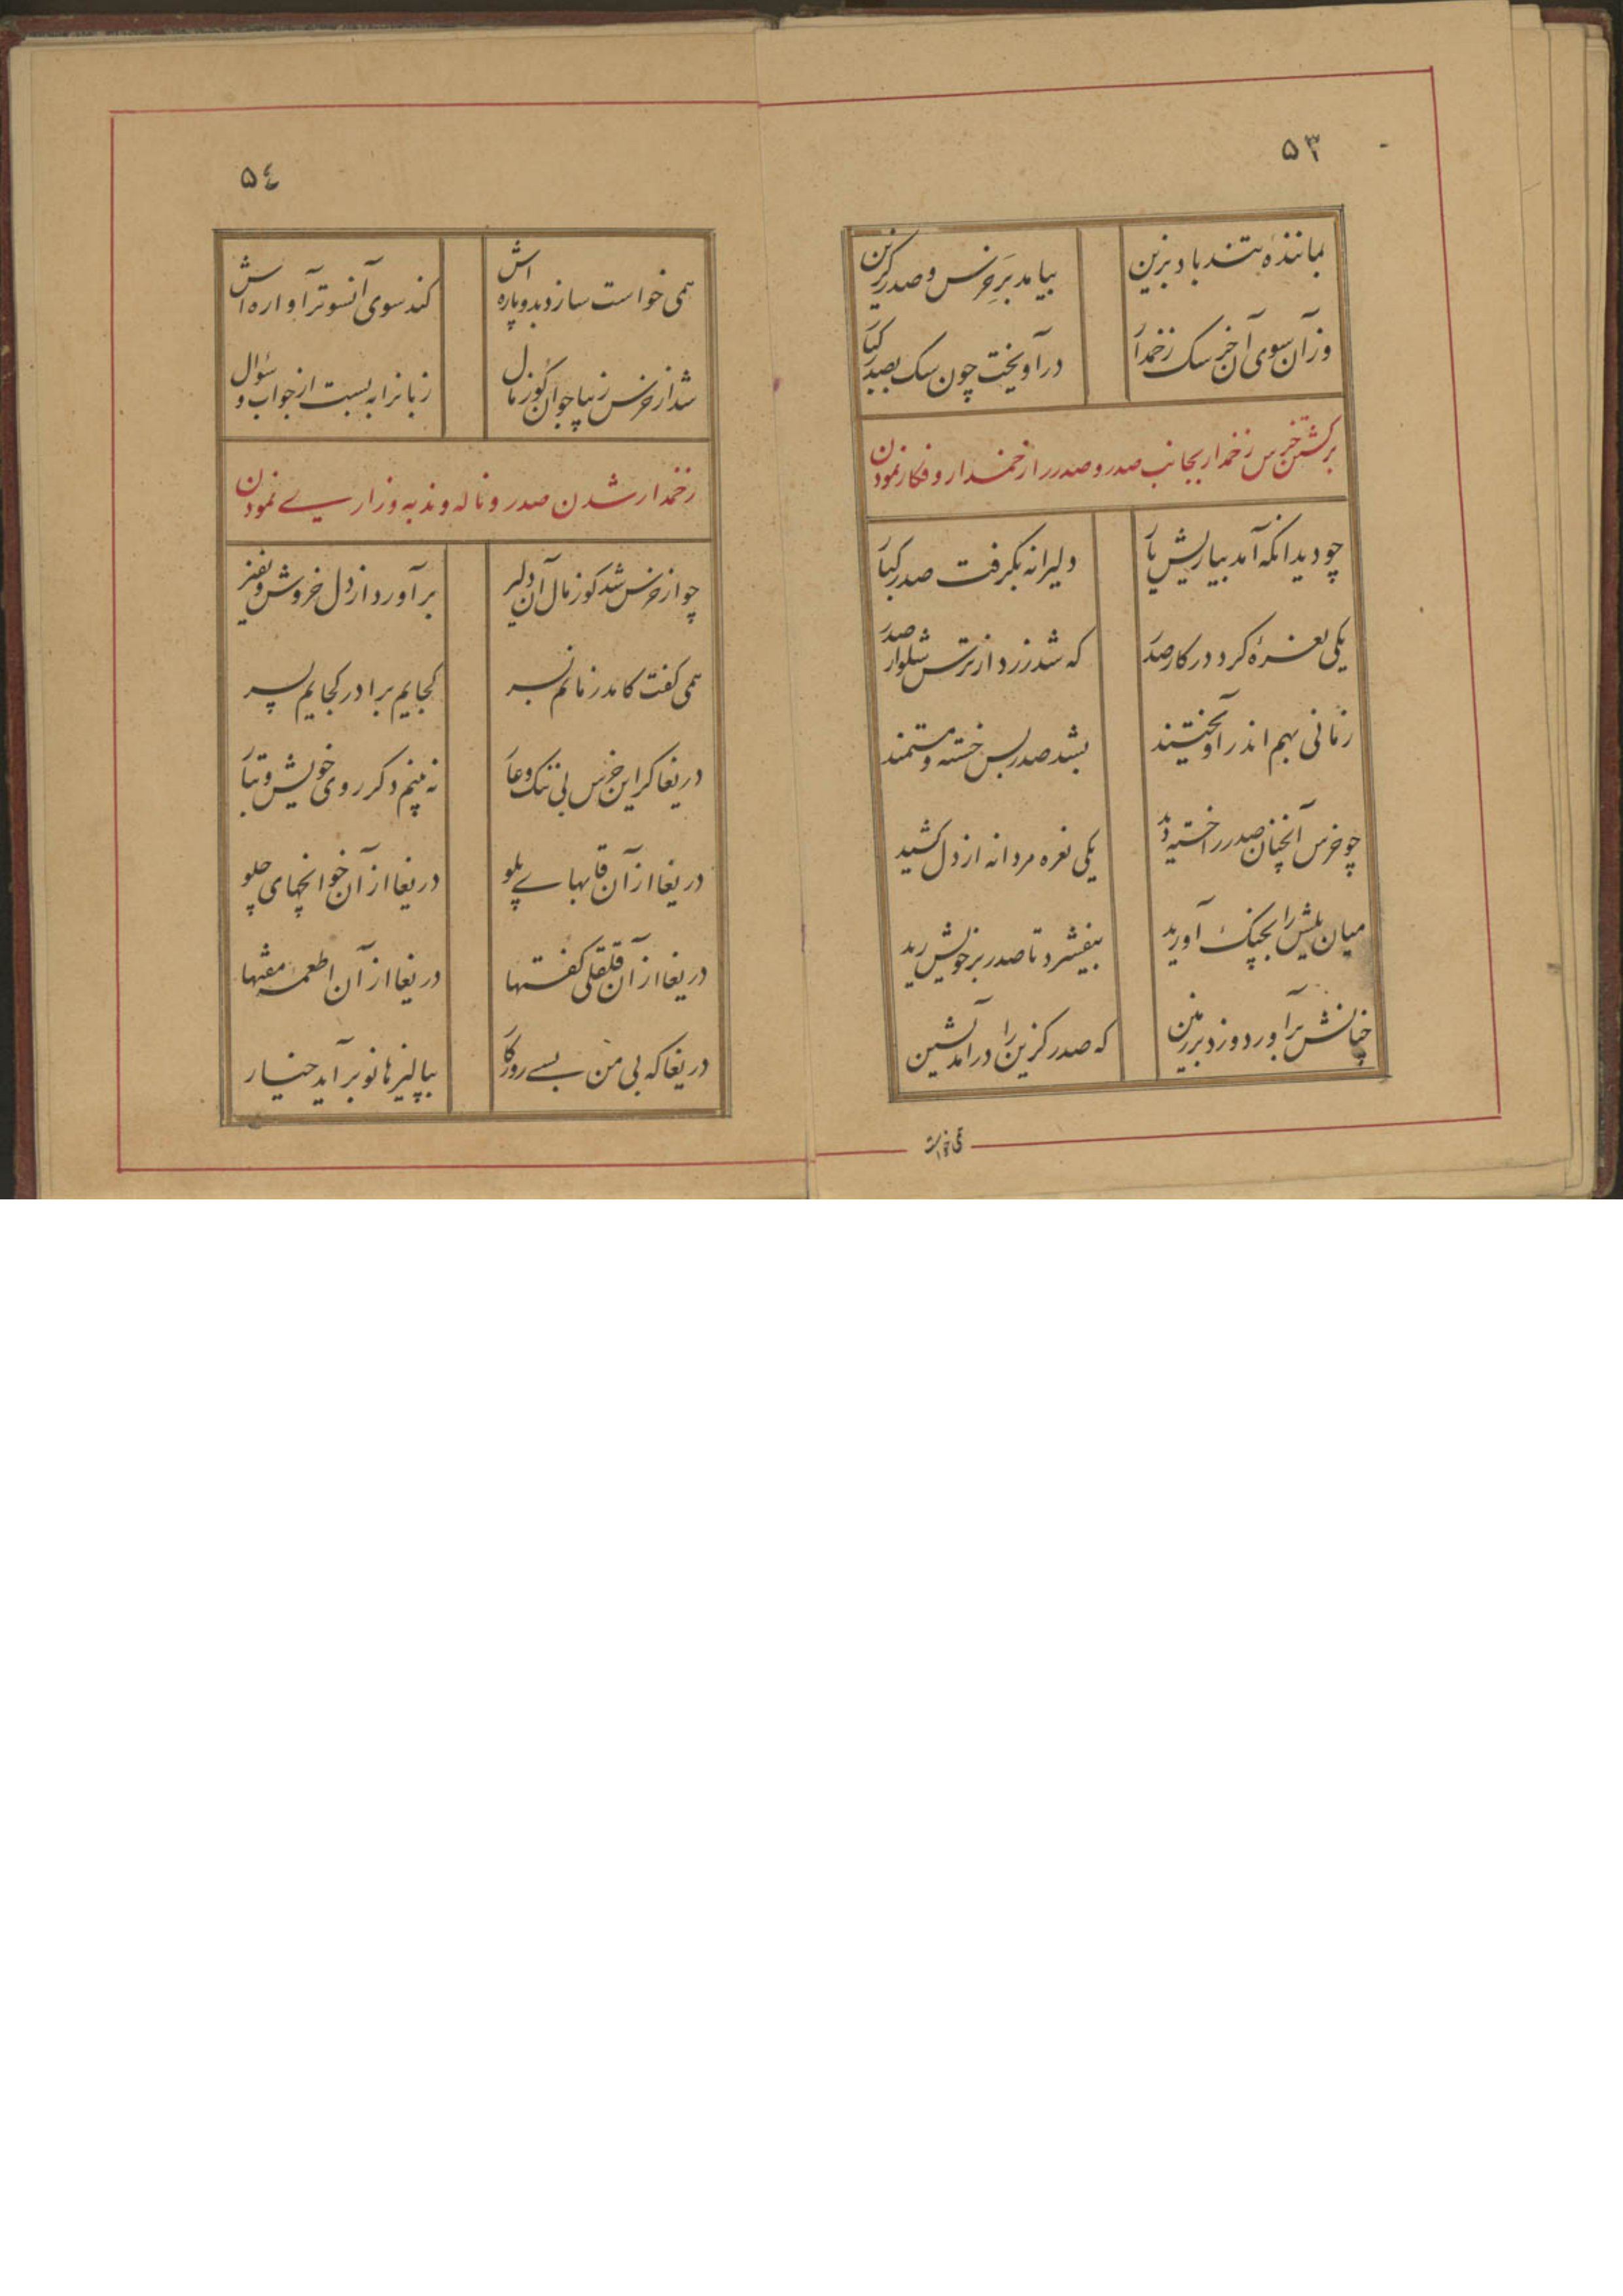 ۵۳
بمانندهٔ تندباد برین
بیامد بر خرس و صدر گزین
وز آن سوی آن خرسک زخمدار
درآویخت چون سگ بصدر کبار
برگشتن خرس زخمدار بجانب صدر و صدر را زخمدار و فکار نمودن
چو دید آنکه آمد بیاریش یار
دلیرانه بگرفت صدر کبار
یکی نعرهٔ کرد در کار صدر
که شد زرد از ترس شلوار صدر
زمانی بهم اندر آویختند
بشد صدر بس خسته و مستمند
چو خرس آنچنان صدر را خسته دید
یکی نعره مردانه از دل کشید
میان یلیش را بچنگ آورید
بیفشرد تا صدر بر خویش رید
چنانش برآورد و زد بر زمین
که صدر گزین را درآمد نشین
همی خواست
۵٤
همی خواست سازد بدو پاره اش
کند سوی آنسوتر آواره اش
شد از خرس زیبا جوان گوزمال
زبانرا به بست از جواب و سؤال
زخمدار شدن صدر و ناله و ندبه و زاری نمودن
چو از خرس شد گوزمال آن دلیر
برآورد از دل خروش و نفیر
همی گفت کامد زمانم بسر
کجایم برادر کجایم پسر
دریغا کز این خرس بی ننگ و عار
نه بینم دگر روی خویش و تبار
دریغا از آن قابهای پلو
دریغا از آن خوانچهای چلو
دریغا از آن قلقلی کفتها
دریغا از آن اطعمه مفتها
دریغا که بی من بسی روزگار
بپالیزها نو برآید خیار